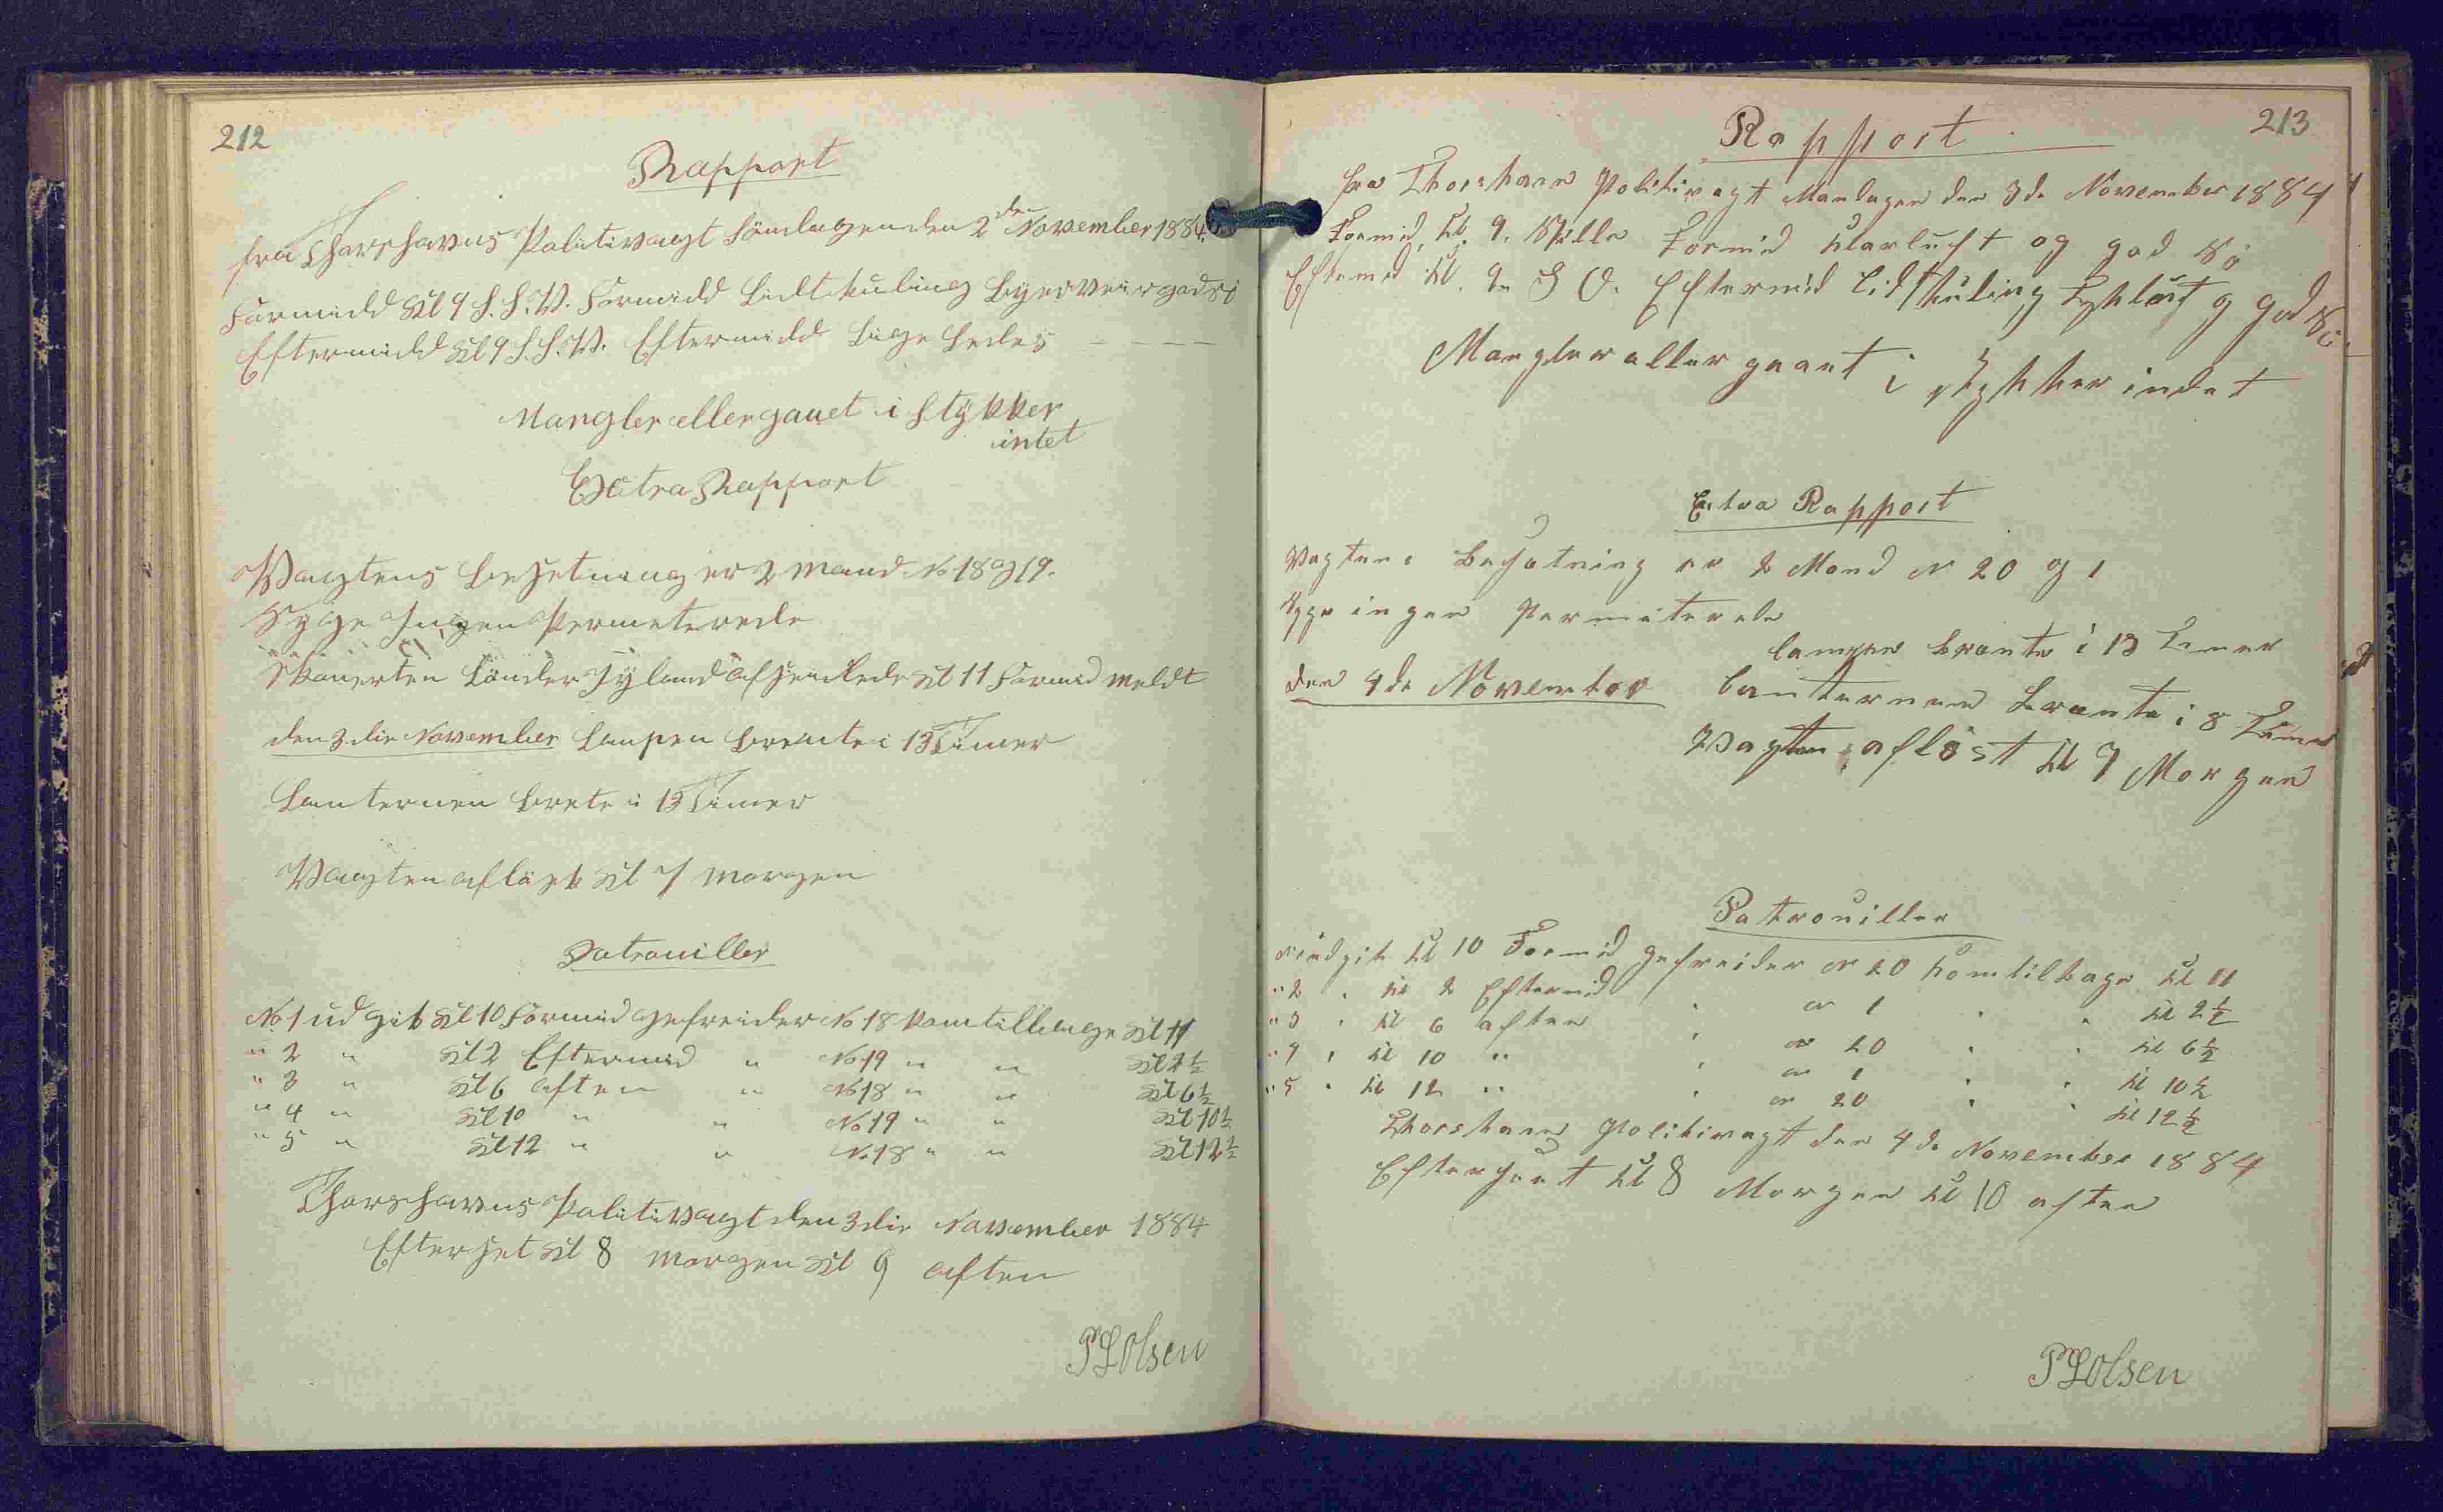 212
Rapport
fra Thorshavns Politivagt Söndagen den 2den November 1884.
Formidd Kl 9 S.S.V. Formidd Lidt kuling Byerveir god Sö
Eftermidd Kl 9 S.S.V. Eftermidd Lige Ledes
Mangler eller gaaet i Stÿkker
intet
Extra Rapport
Vagtens Besetning er 2 Mand No 18 og 19.
Syge Ingen Permeterede
Skonerten Sönder Jÿland afseilede Kl 11 Formid meldt
den 3die November Lampen brente i 13 Timer
Lanternen brete i 13 Timer
Vagten aflöst Kl 7 Morgen
Patrouiller
No 1 udgik Kl 10 Formid gefreider No 18 kom tilbage Kl 11
" 2 " Kl 2 Eftermid " No 19 " " Kl 2½
" 3 " Kl 6 aften " No 18 " " Kl 6½
" 4 " Kl 10 " " No 19 " " Kl 10½
" 5 " Kl 12 " " No 18 " " Kl 12½
Thorshavns Politivagt den 3die November 1884
Efterset Kl 8 Morgen Kl 9 aften
P Olsen
213
Rapport
fra Thorshavn Politivagt Mandagen den 3de November 1884
Formid. Kl. 9. Stille Formid klarluft og god Sö
Eftemid Kl. 9. S O. Eftermid Lidt kuling Tykluft og god Sö
Mangler eller gaaet i stykker indet
Extra Rapport
Vagtens Besatning er 2 Mand N 20 og 1
Syge ingen Permeterede
lampen brente i 13 Timer
den 4de November lanternen brente i 8 Timer
Vagten aflöst Kl 7 Morgen
Patrouiller
Kl 10 Formid gefreider N 20 kom tilbage Kl 11
" 2 " Kl 2 Eftermid " N 1 " " Kl 2½
" 3 " Kl 6 aften " N 20 " " Kl 6½
" 4 " Kl 10 " " N 1 " " Kl 10½
" 5 " Kl 12 " " N 20 " " Kl 12½
Thorshavn Politivagt den 4de November 1884
Eftersent Kl 8 Morgen Kl 10 aften
P Olsen